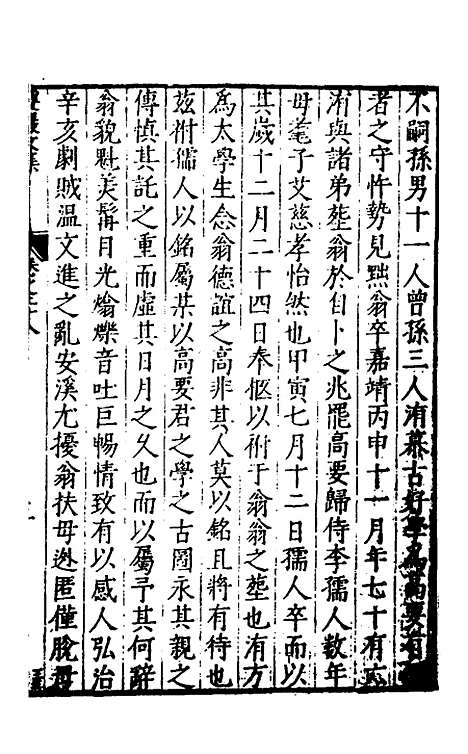 不嗣孫男十一人曾孫三人洧慕古好學為高要有
者之守忤勢見黜翁卒嘉靖丙申十一月年七十有
洧與諸弟塟翁於自卜之兆罷高要歸侍李孺人數年
母耄子艾慈孝怡然也甲寅七月十二日孺人卒而以
其歲十二月二十四日奉柩以祔于翁翁之塟也洧方
為太學生念翁德誼之高非其人莫以銘且將有待也
茲祔孺人以銘屬某以高要君之學之古圖永其親之
傳慎其託之重而虛其日月之久也而以屬予其何辭
翁貌魁美髯目光爚爍音吐巨暢情致有以感人弘治
辛亥劇賊溫文進之亂安溪尤擾翁扶母迯匿僅脫母